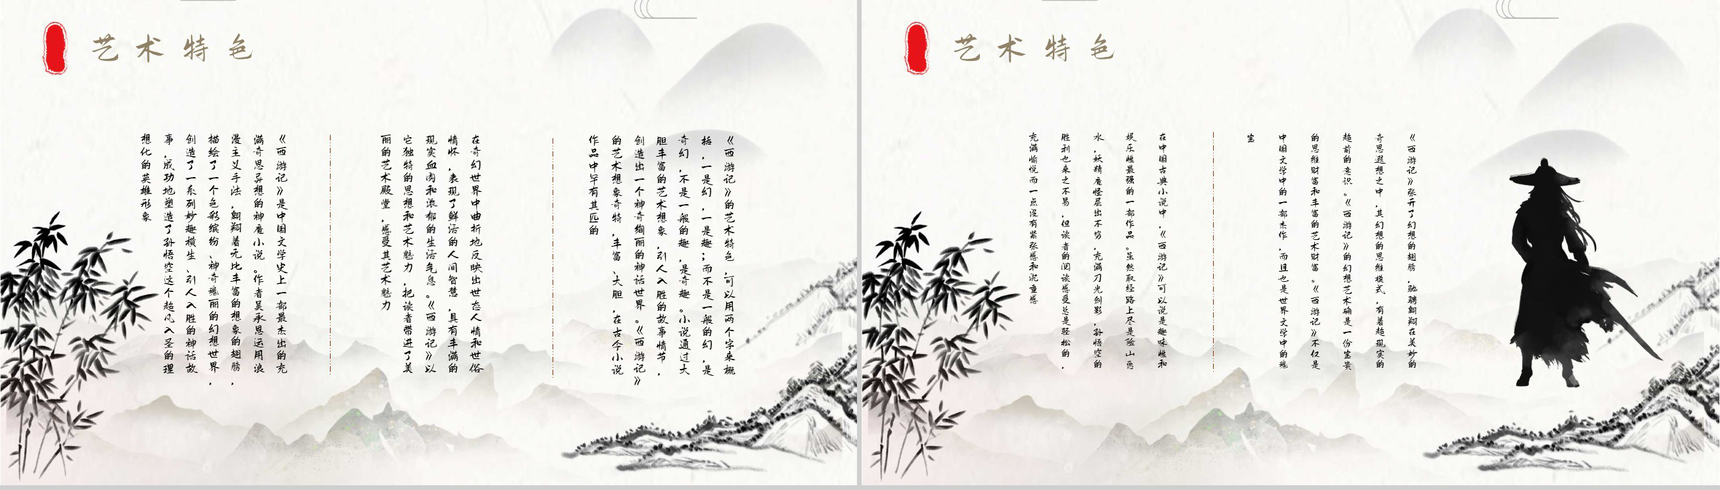 艺术特色
《西游记》的艺术特色，可以用两个字来概
括，一是幻，一是趣；而不是一般的幻，是
奇幻，不是一般的趣，是奇趣。小说通过大
胆丰富的艺术想象，引人入胜的故事情节，
创造出一个神奇绚丽的神话世界。《西游记》
的艺术想象奇特、丰富、大胆，在古今小说
作品中罕有其匹的
在奇幻世界中曲折地反映出世态人情和世俗
情怀，表现了鲜活的人间智慧，具有丰满的
现实血肉和浓郁的生活气息。《西游记》以
它独特的思想和艺术魅力，把读者带进了美
丽的艺术殿堂，感受其艺术魅力
《西游记》是中国文学史上一部最杰出的充
满奇思异想的神魔小说。作者吴承恩运用浪
漫主义手法，翱翔着无比丰富的想象的翅膀，
描绘了一个色彩缤纷、神奇瑰丽的幻想世界，
创造了一系列妙趣横生、引人入胜的神话故
事，成功地塑造了孙悟空这个超凡入圣的理
想化的英雄形象
艺术特色
《西游记》张开了幻想的翅膀，驰骋翱翔在美妙的
奇思遐想之中，其幻想的思维模式，有着超现实的
超前的意识。《西游记》的幻想艺术确是一份宝贵
的思维财富和丰富的艺术财富。《西游记》不仅是
中国文学中的一部杰作，而且也是世界文学中的瑰
宝
在中国古典小说中，《西游记》可以说是趣味性和
娱乐性最强的一部作品。虽然取经路上尽是险山恶
水，妖精魔怪层出不穷，充满刀光剑影，孙悟空的
胜利也来之不易，但读者的阅读感受总是轻松的，
充满愉悦而一点没有紧张感和沉重感